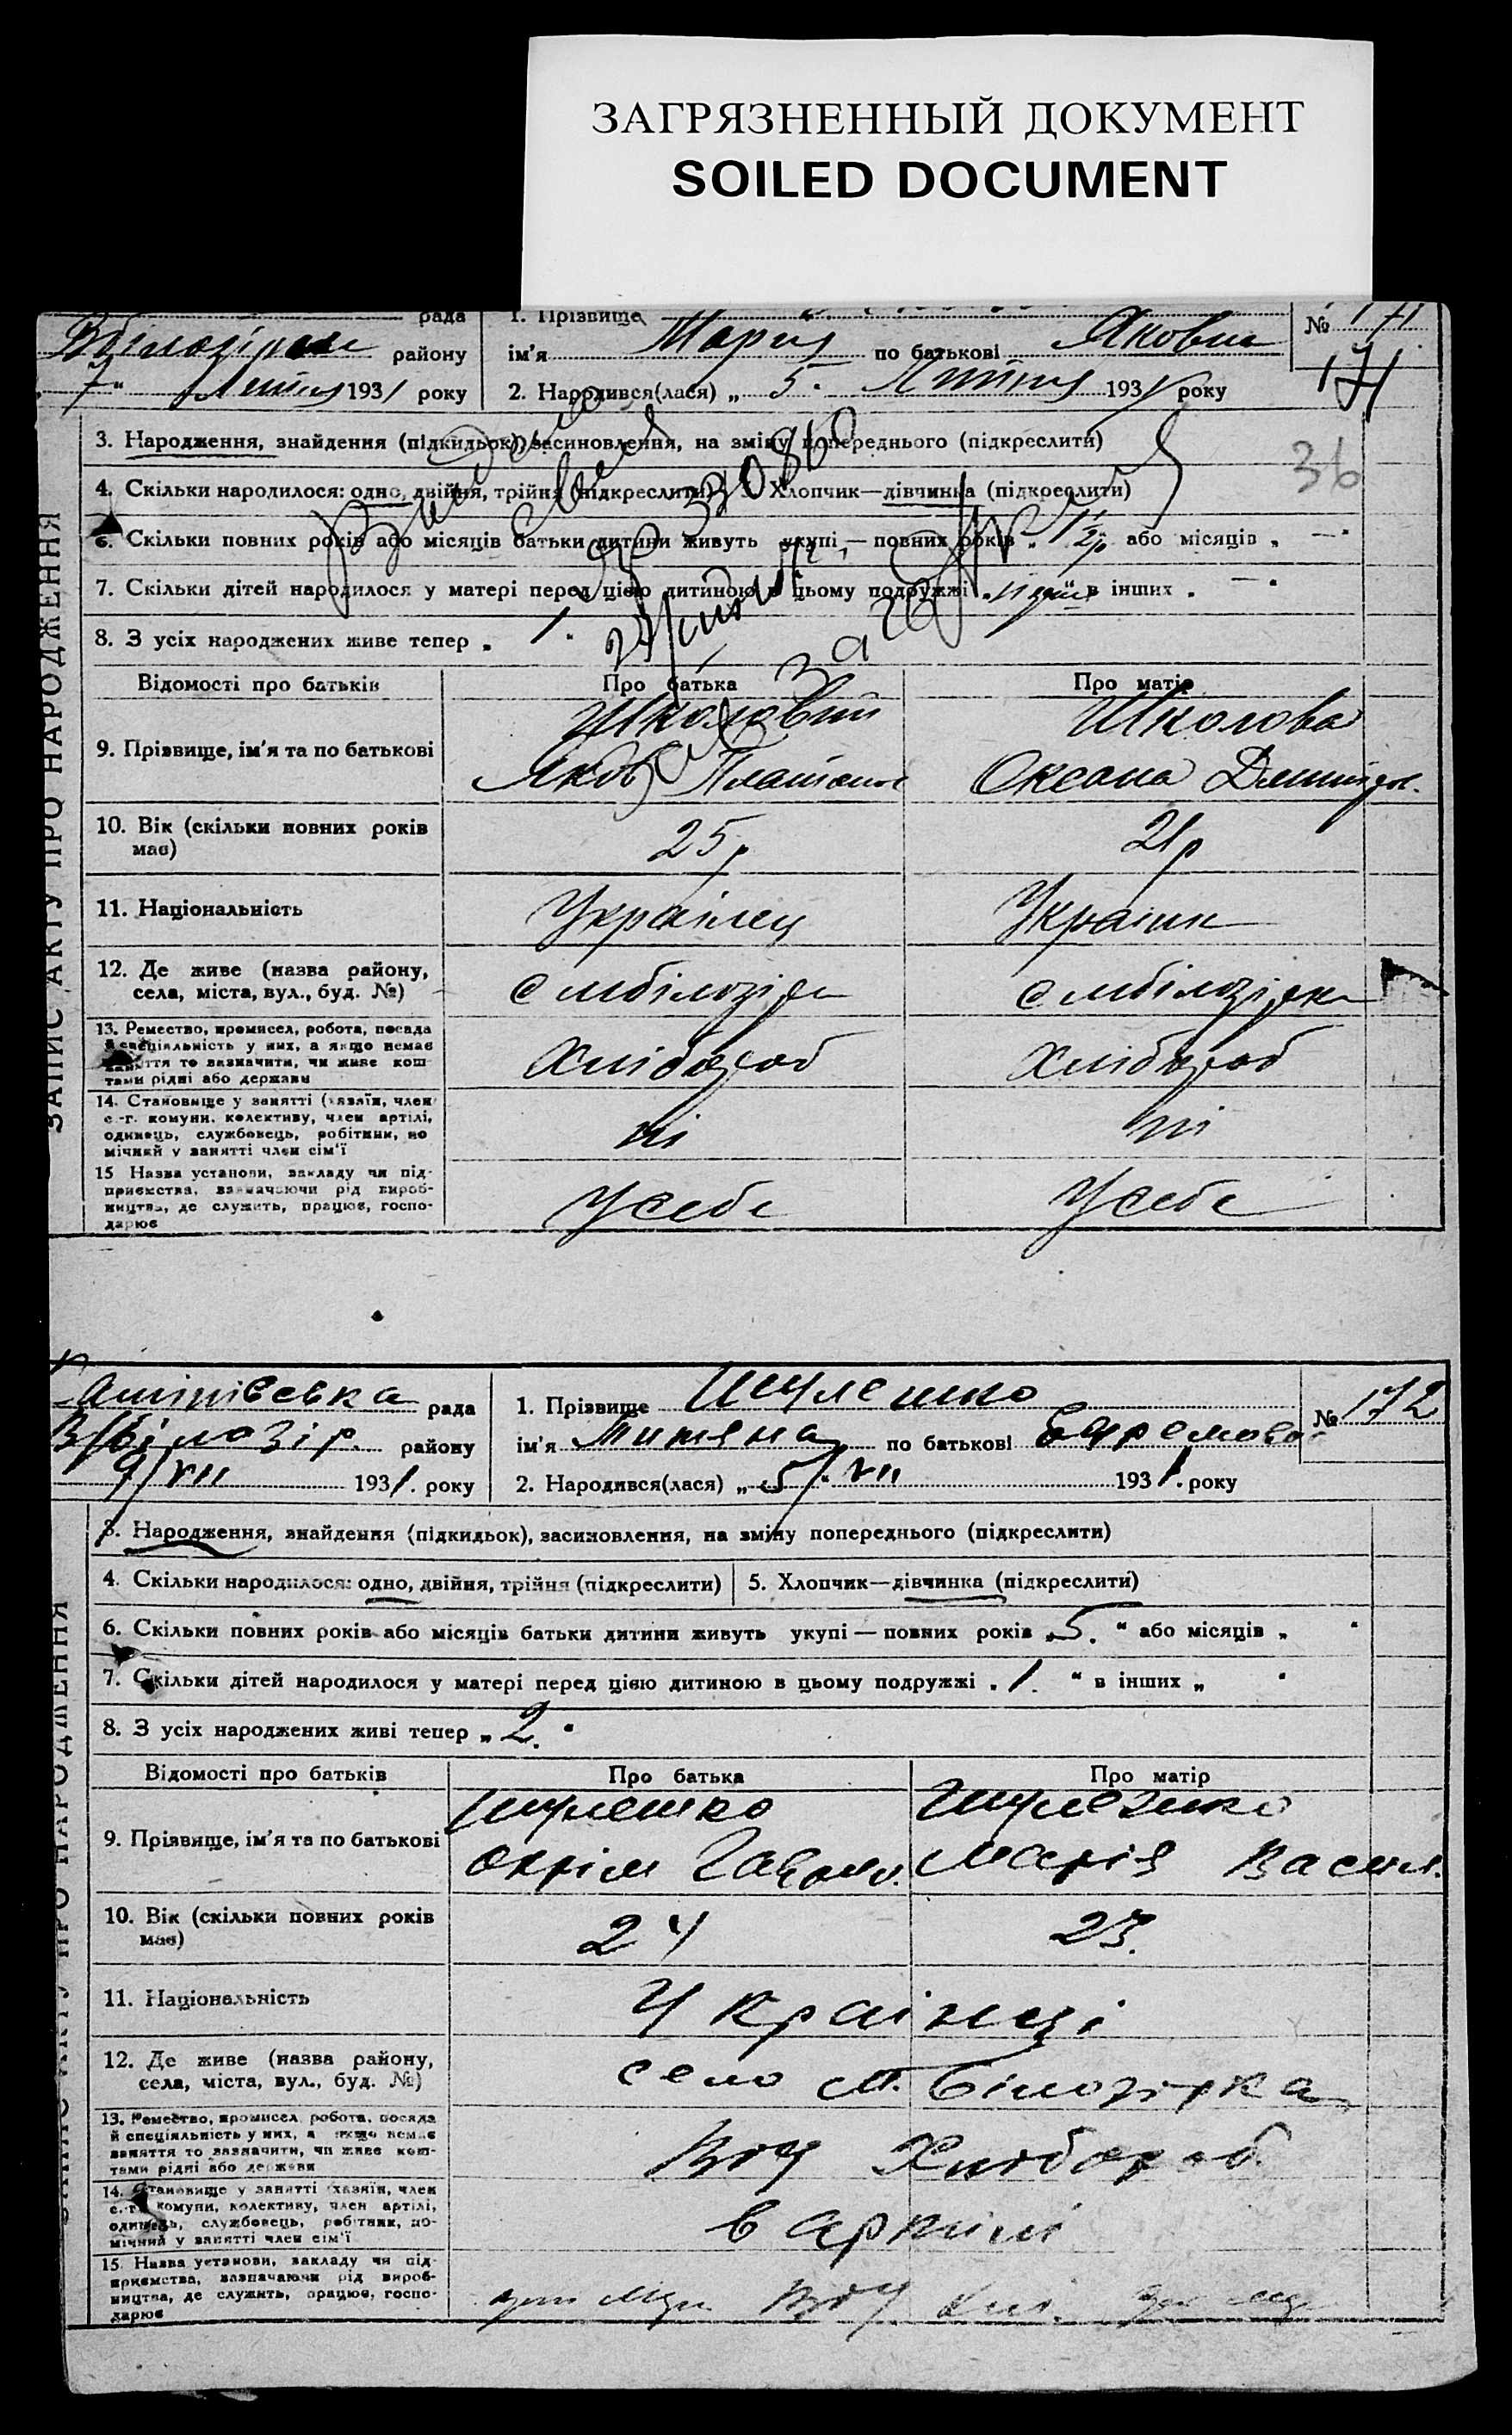 ЗАГРЯЗНЕННЫЙ ДОКУМЕНТ
SOILED DOCUMENT
рада
1. Прізвище
№ 171
району
ім'я Мария по батькові Яковна
7 Липня 1931 року
2. Народився(лася) „ 5. Липня 1931 року
171
ЗАПИС АКТУ ПРО НАРОДЖЕННЯ
3. Народження, знайдення (підкидьок), засиновлення, на зміну попереднього (підкреслити)
36
4. Скільки народилося: одно, двійня, трійня (підкреслити) 5. Хлопчик—дівчинка (підкреслити)
6. Скільки повних років або місяців батьки дитини живуть укупі — повних років „ або місяців „ — "
7. Скільки дітей народилося у матері перед цією дитиною в цьому подружжі „ " в інших „ — "
8. З усіх народжених живе тепер „ 1. "
Відомості про батьків Про батька Про матір
9. Прізвище, ім'я та по батькові
Школовий Школова
Яков Платонов Оксана
10. Вік (скільки повних років має) 25р 21р
11. Національність Українец Україн
12. Де живе (назва району, села, міста, вул., буд. №)
с мбілозірки с мбілозірка
13. Ремество, промисел, робота, посада й спеціяльність у них, а якщо немає заняття то зазначити, чи живе коштами рідні або держави
Хлібороб Хлібороб
14. Становище у занятті (хазяїн, член с.-г. комуни, колективу, член артілі, одинець, службовець, робітник, помічний у занятті член сім'ї
ні ні
15 Назва установи, закладу чи підприємства, зазначаючи рід виробництва, де служить, працює, господарює
У себе У себе
рада
1. Прізвище Шулешко
№ 172
В/білозір. району
ім'я Титяна по батькові Ефремовна
9/VII 1931. року
2. Народився(лася) „ 5/VII 1931. року
ЗАПИС АКТУ ПРО НАРОДЖЕННЯ
3. Народження, знайдення (підкидьок), засиновлення, на зміну попереднього (підкреслити)
4. Скільки народилося: одно, двійня, трійня (підкреслити) 5. Хлопчик—дівчинка (підкреслити)
6. Скільки повних років або місяців батьки дитини живуть укупі — повних років „ 5. " або місяців „ "
7. Скільки дітей народилося у матері перед цією дитиною в цьому подружжі „ 1. " в інших „ "
8. З усіх народжених живі тепер „ 2. "
Відомості про батьків Про батька Про матір
9. Прізвище, ім'я та по батькові
Шулешко Шулешко
Охрім Марія Васил.
10. Вік (скільки повних років має) 24 23.
11. Національність Українці
12. Де живе (назва району, села, міста, вул., буд. №)
село М. Білозірка
13. Ремество, промисел, робота, посада й спеціяльність у них, а якщо немає заняття то зазначити, чи живе коштами рідні або держави
Хлібороб.
14. Становище у занятті (хазяїн, член с.-г. комуни, колективу, член артілі, одинець, службовець, робітник, помічний у занятті член сім'ї
в артілі
15. Назва установи, закладу чи підприємства, зазначаючи рід виробництва, де служить, працює, господарює